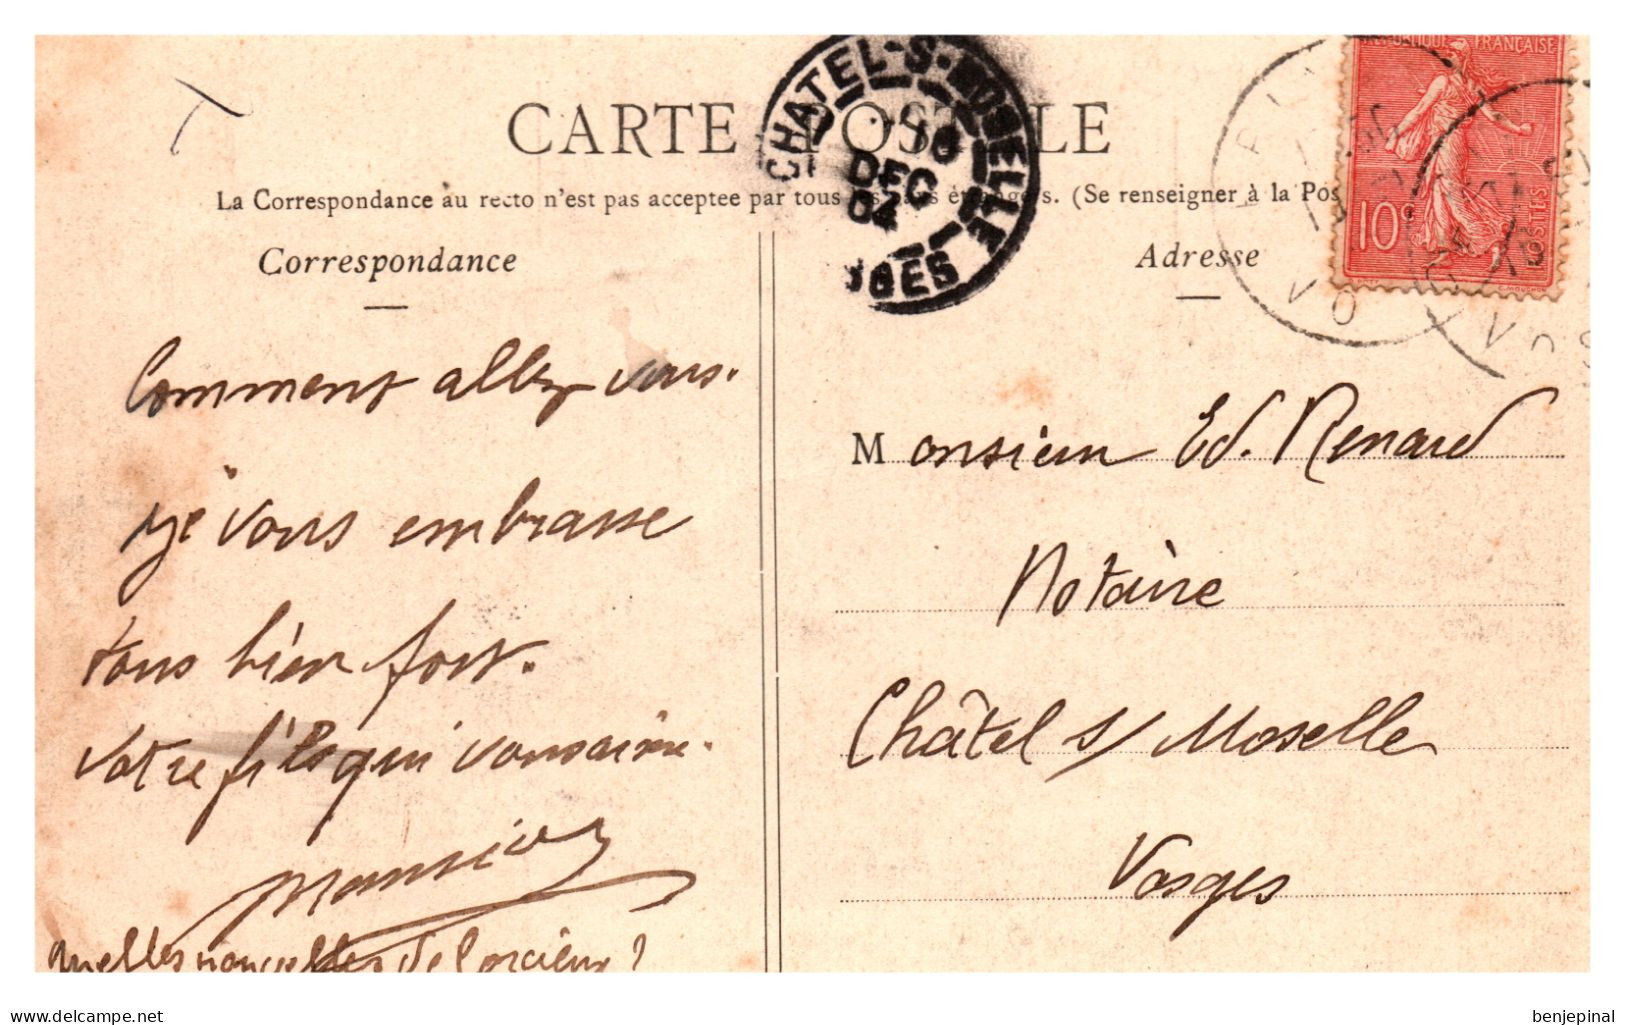 CARTE POSTALE
La Correspondance au recto n'est pas acceptée par tous les pays étrangers. (Se renseigner à la Pos
Correspondance
Comment allez vous.
Je vous embrasse
tous bien fort.
Votre fils qui vous aime.
Quelles nouvelles de Corcieux?
Adresse
Monsieur Ed. Renard
Notaire
Châtel s/ Moselle
Vosges
CHATEL-S-MOSELLE
10
DEC
04
VOSGES
REPUBLIQUE FRANÇAISE
10c
POSTES
delcampe.net
benjepinal